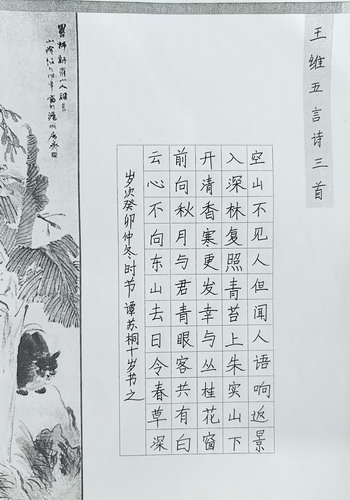 王维五言诗三首
空山不见人但闻人语响返景
入深林复照青苔上朱实山下
开清香寒更发幸与丛桂花窗
前向秋月与君青眼客共有白
云心不向东山去日令春草深
岁次癸卯仲冬时节谭苏桐十岁书之